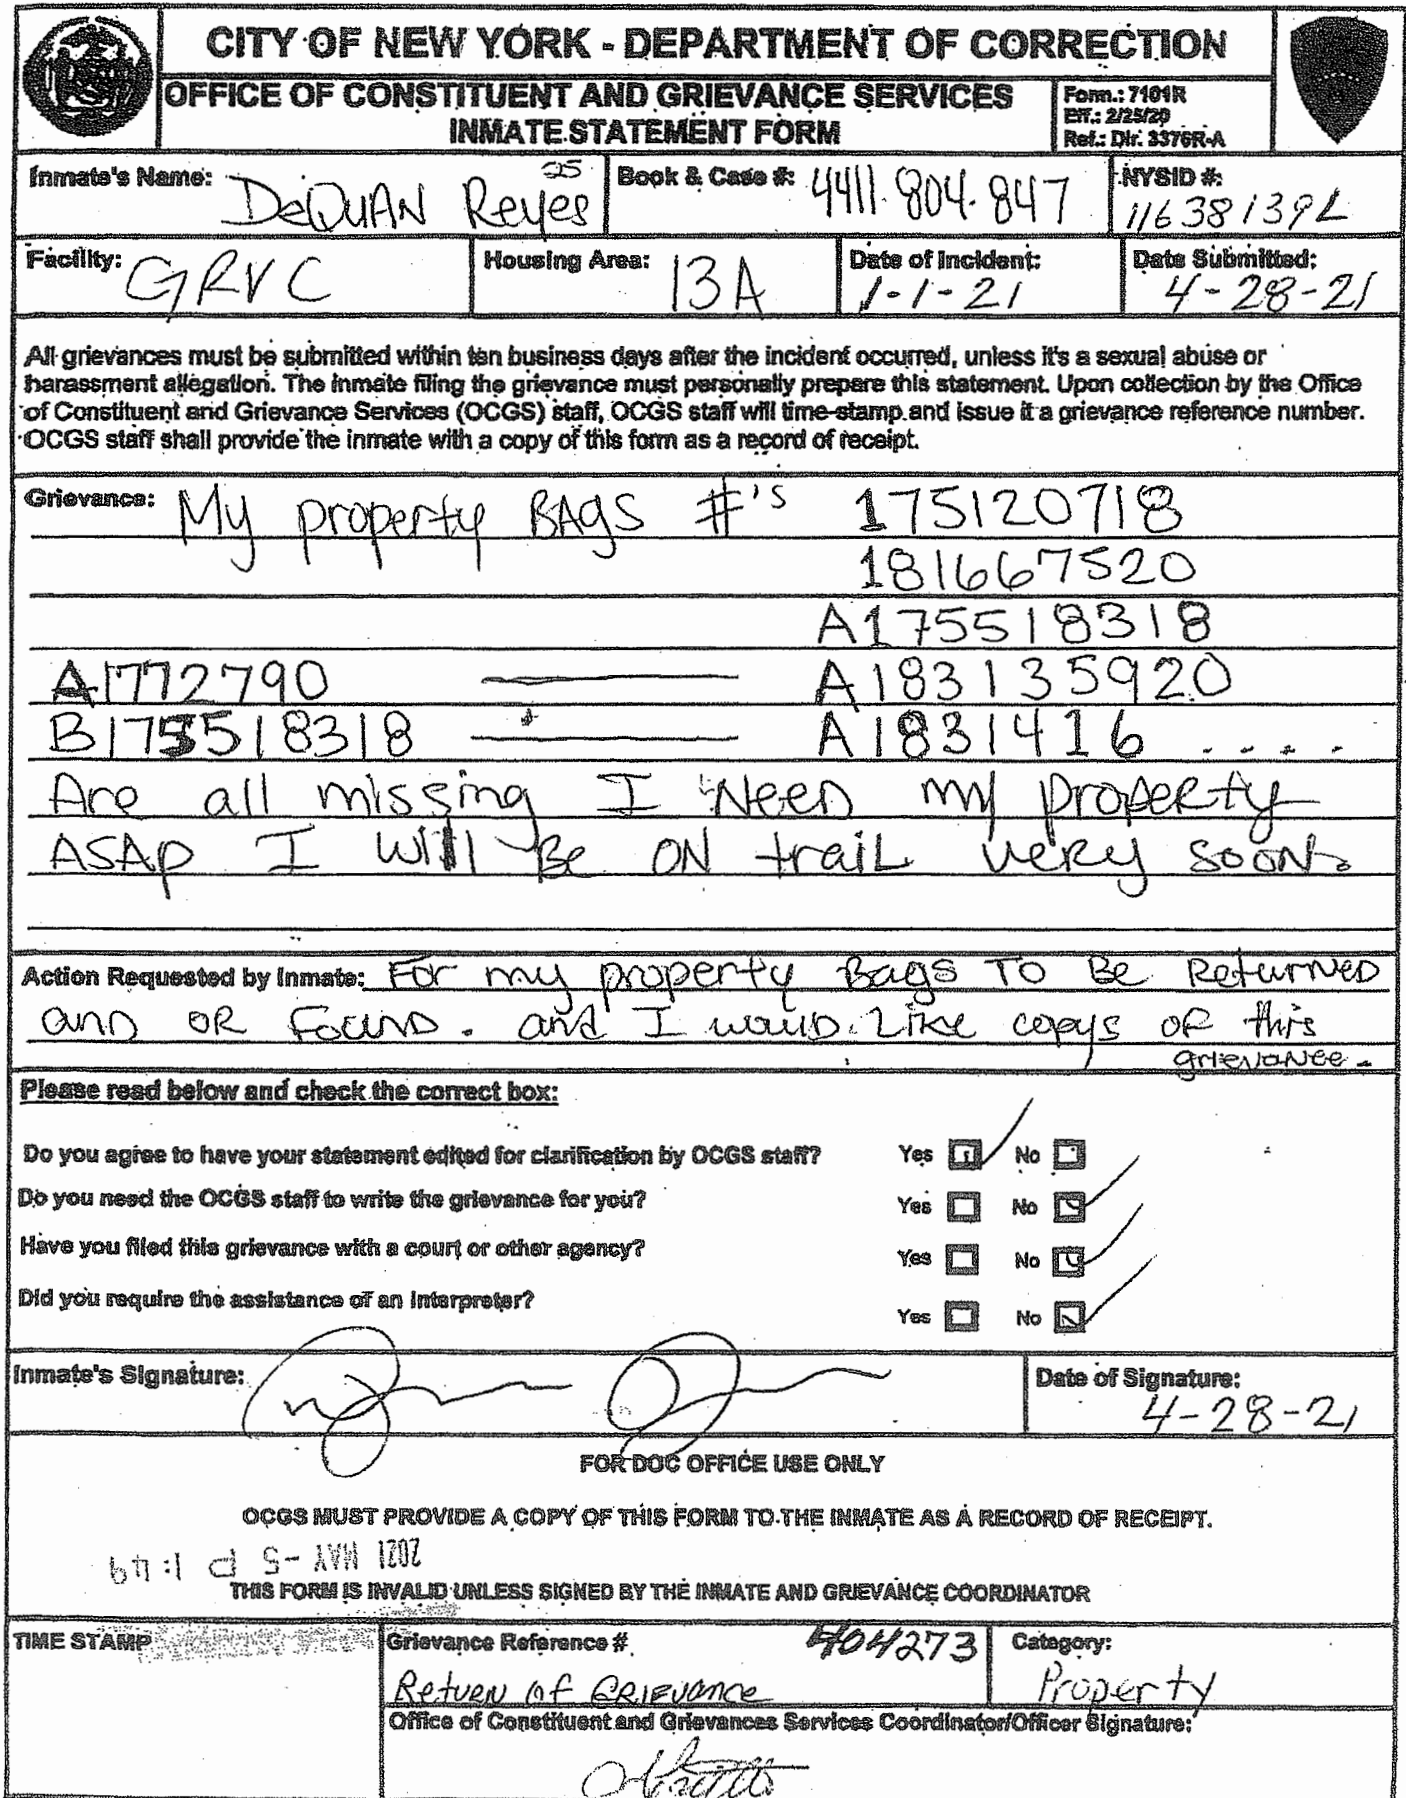 CITY OF NEW YORK - DEPARTMENT OF CORRECTION
OFFICE OF CONSTITUENT AND GRIEVANCE SERVICES
INMATE STATEMENT FORM
Form.: 7101R
Eff.: 2/25/20
Ref.: Dir. 3376R-A
Inmate's Name: DeQUAN Reyes 25
Book & Case #: 4411.804.847
NYSID #: 11638139L
Facility: GRVC
Housing Area: 13A
Date of Incident: 1-1-21
Date Submitted: 4-28-21
All grievances must be submitted within ten business days after the incident occurred, unless it's a sexual abuse or
harassment allegation. The inmate filing the grievance must personally prepare this statement. Upon collection by the Office
of Constituent and Grievance Services (OCGS) staff, OCGS staff will time-stamp and issue it a grievance reference number.
OCGS staff shall provide the inmate with a copy of this form as a record of receipt.
Grievance: My property BAgS #'s 175120718
181667520
A175518318
A1772790 — A183135920
B175518318 — A1831416 . . . .
Are all missing I NeeD my properRty
ASAp I Will Be ON traiL veRy sooN.
Action Requested by Inmate: For my property Bags To Be ReturNeD
anD OR FounD. and I woulD Like copys of this
grievaNce.
Please read below and check the correct box:
Do you agree to have your statement edited for clarification by OCGS staff? Yes No
Do you need the OCGS staff to write the grievance for you? Yes No
Have you filed this grievance with a court or other agency? Yes No
Did you require the assistance of an interpreter? Yes No
Inmate's Signature:
Date of Signature: 4-28-21
FOR DOC OFFICE USE ONLY
OCGS MUST PROVIDE A COPY OF THIS FORM TO THE INMATE AS A RECORD OF RECEIPT.
2021 MAY -5 P 1:49
THIS FORM IS INVALID UNLESS SIGNED BY THE INMATE AND GRIEVANCE COORDINATOR
TIME STAMP
Grievance Reference #. 404273
Return of GRIEVance
Category: Property
Office of Constituent and Grievances Services Coordinator/Officer Signature: